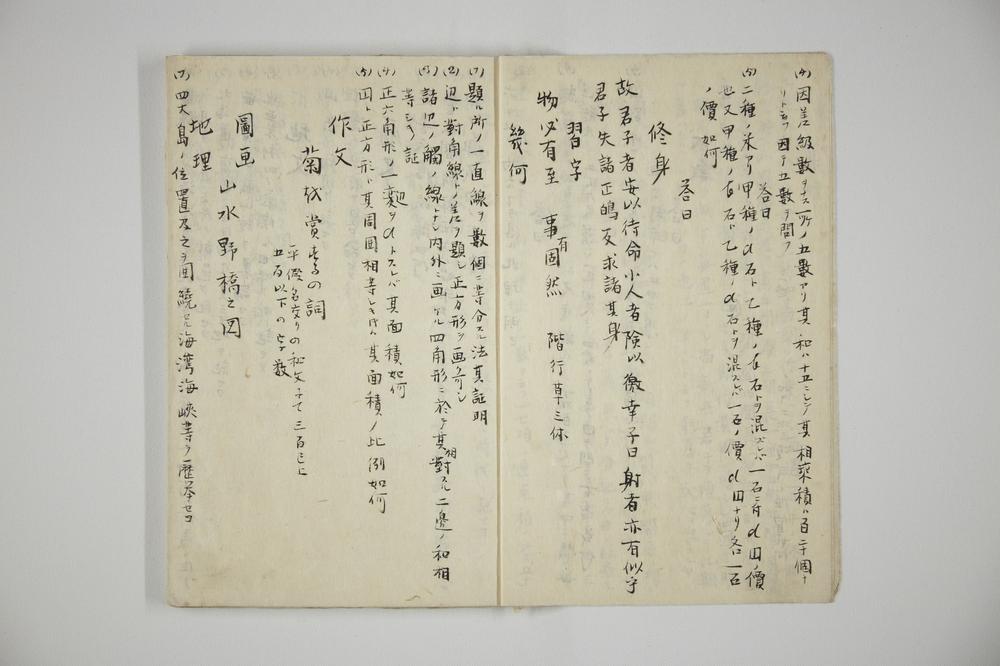 (4) 因差級數ヲナス所ノ五數アリ其ノ和ハ十五ニシテ其相乘積ハ百二十個ナ
リト云フ因テ五數ヲ問フ
答曰
(5) 二種ノ米アリ甲種ノa石ト乙種ノb石トヲ混ズレバ一石ニ付d円ノ價
也又甲種ノb石ト乙種ノa石トヲ混ズレバ一石ノ價d円ナリ各一石
ノ價如何
答曰
修身
故君子者安以待命小人者険以徼幸子曰射者亦有似乎
君子失諸正鳴反求諸其身
習字
物必有至 事有固然 階行草三体
幾何
(1) 題ル所ノ一直線ヲ数個ニ等分スル法其証明
(2) 辺ト對角線トノ差ヲ題シ正方形ヲ画ケ
(3) 諸辺ノ觸ノ線トナシ内外ニ画ケル四角形ニ於テ其相對スル二邊ノ和相
等シキノ証
(4) 正六角形ノ一邊ヲdトスレバ其面積如何
(5) 円ト正方形ト其周囲相等シキ時ハ其面積ノ比例如何
作文
菊を賞するの詞
平假名交りの和文にて三百已上
五百以下の字数
圖画
山水野橋之図
地理
(1) 四大島ノ位置及之ヲ囲繞セル海湾海峡等ヲ歴挙セヨ